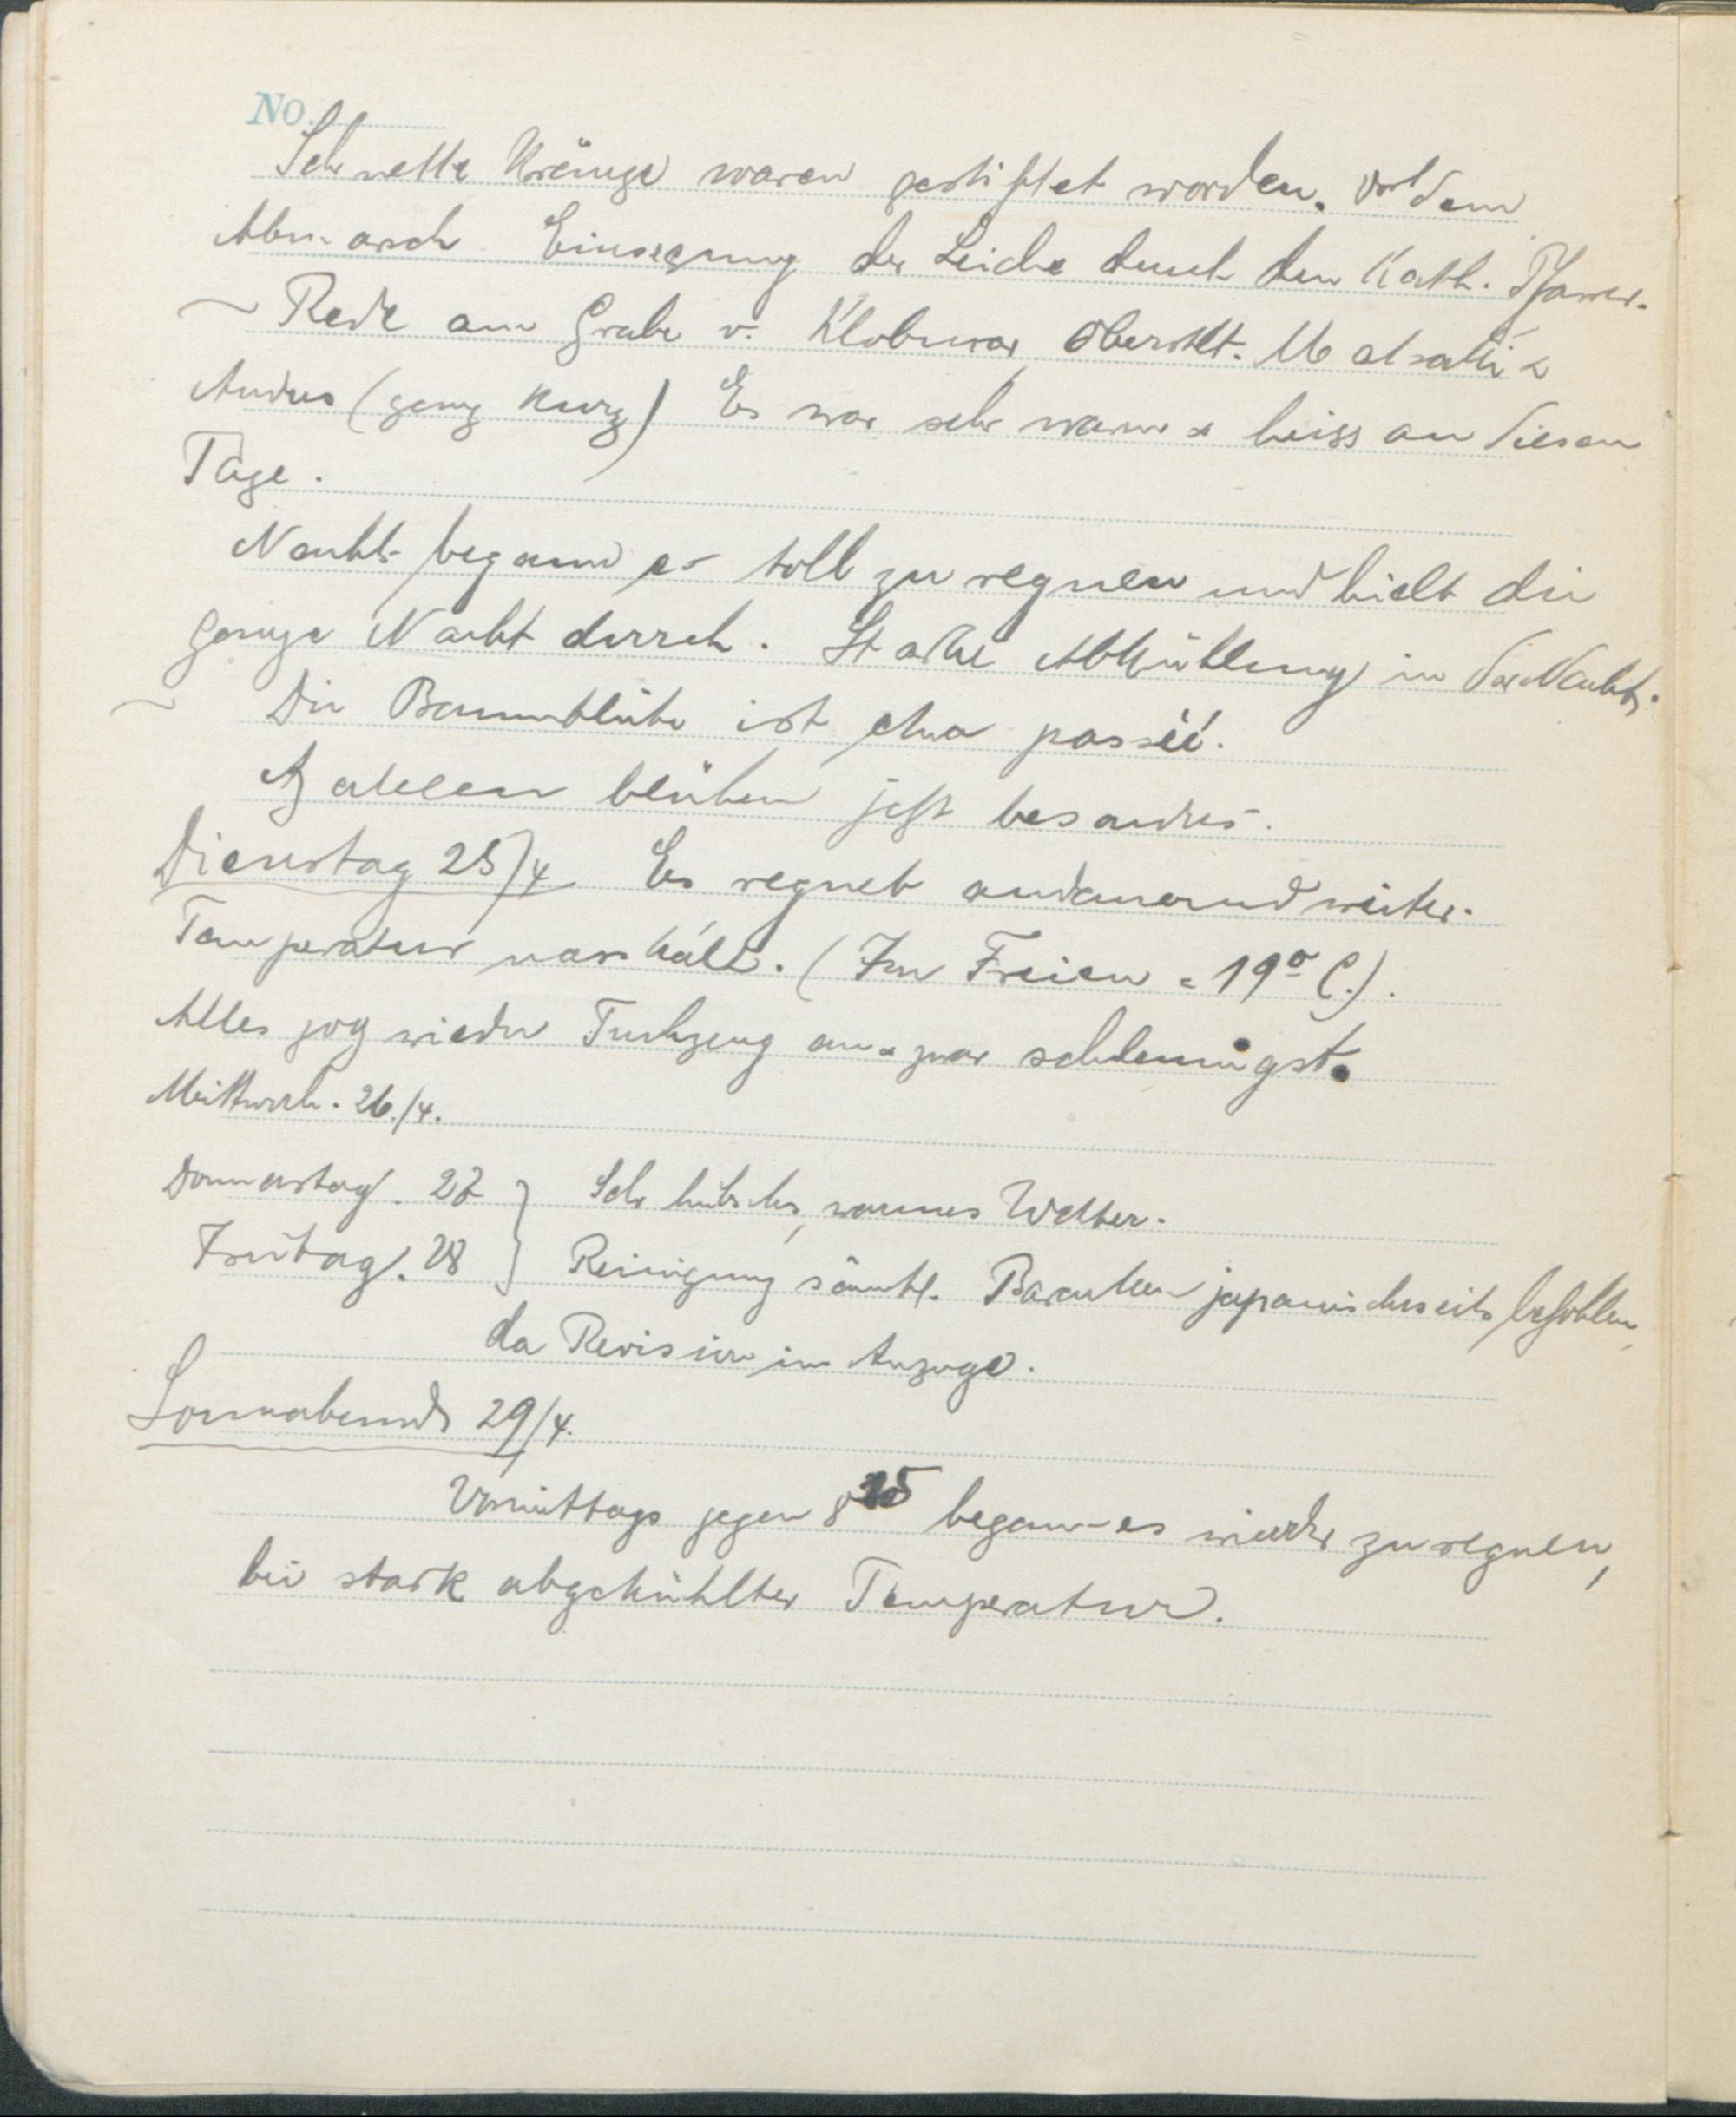 No.
Sehr nette Kränze waren gestiftet worden. Vor dem
Abmarsch Einsegnung der Leiche durch den Kath. Pfarrer.
~ Rede am Grabe v. Klobucar, Oberstlt.
Andres (ganz kurz) Es war sehr warm & heiss an diesem
Tage.
Nachts begann es toll zu regnen und hielt die
ganze Nacht durch. Starke Abkühlung in der Nacht.
~ Die Baumblüte ist etwa passé.
Azaleen blühen jetzt besonders.
Dienstag 25/4 Es regnet andauernd weiter.
Temperatur nasskalt. (Im Freien = 19º C.).
Alles zog wieder Tuchzeug an & zwar schleunigst.
Mittwoch. 26./4.
Donnerstag. 27 } Sehr hübsches, warmes Wetter.
Freitag. 28 } Reinigung sämtl. Baracken japanischerseits befohlen,
da Revision im Anzuge.
Sonnabend 29/4.
Vormittags gegen 8 begann es wieder zu regnen,
bei stark abgekühlter Temperatur.